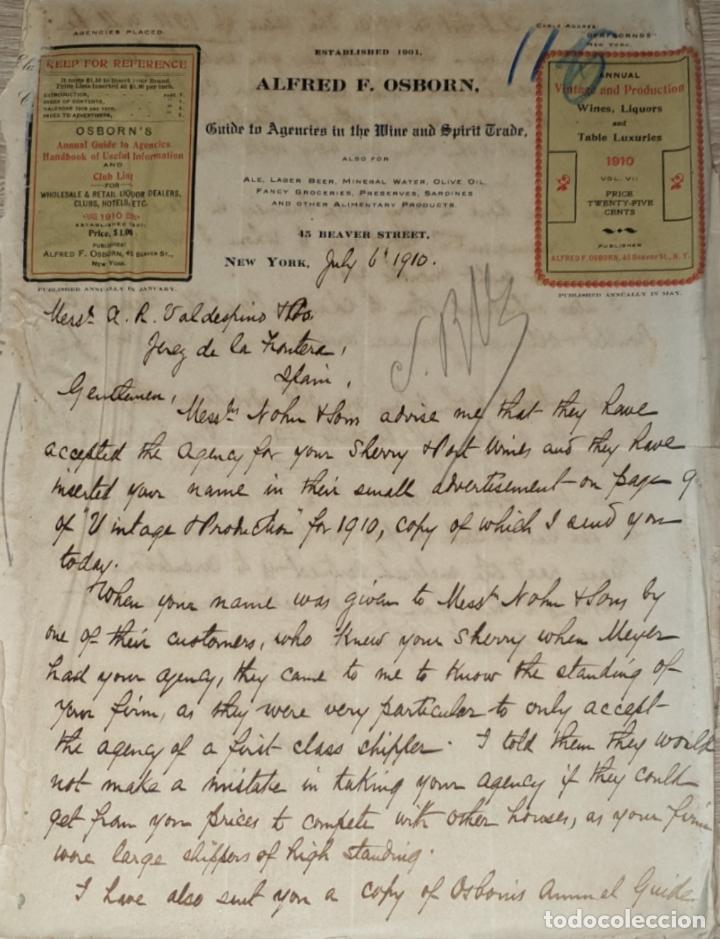 AGENCIES PLACED.
CABLE ADDRESS
NEW YORK.
ESTABLISHED 1901.
ALFRED F. OSBORN,
Guide to Agencies in the Wine and Spirit Trade,
ALSO FOR
ALE, LAGER BEER, MINERAL WATER, OLIVE OIL,
FANCY GROCERIES, PRESERVES, SARDINES
AND OTHER ALIMENTARY PRODUCTS.
45 BEAVER STREET,
NEW YORK, July 6th 1910.
KEEP FOR REFERENCE
INTRODUCTION,
INDEX OF CONTENTS,
INDEX TO ADVERTISERS,
OSBORN'S
Annual Guide to Agencies
Handbook of Useful Information
AND
Club List
FOR
WHOLESALE & RETAIL LIQUOR DEALERS,
CLUBS, HOTELS, ETC.
1910
ESTABLISHED 1901
Price, $1.00
PUBLISHER
ALFRED F. OSBORN, 45 BEAVER ST.,
NEW YORK.
PUBLISHED ANNUALLY IN JANUARY.
116
ANNUAL
Vintage and Production
Wines, Liquors
and
Table Luxuries
1910
VOL. VII
PRICE
TWENTY-FIVE
CENTS
PUBLISHER
ALFRED F. OSBORN, 45 Beaver St., N.Y.
PUBLISHED ANNUALLY IN MAY.
Messrs A. R. Valdespino & Bro.
Jerez de la Frontera,
Spain,
Gentlemen,
Messrs Nohn & Sons advise me that they have
accepted the Agency for your Sherry & Port Wines and they have
inserted your name in their small advertisement on page 9
of "Vintage & Production" for 1910, copy of which I send you
today.
When your name was given to Messrs Nohn & Sons by
one of their customers, who knew your Sherry when Meyer
had your agency, they came to me to know the standing of
your firm, as they were very particular to only accept
the agency of a first class shipper. I told them they would
not make a mistake in taking your agency if they could
get from you prices to compete with other houses, as your firm
were large shippers of high standing.
I have also sent you a copy of Osborn's Annual Guide
todocoleccion